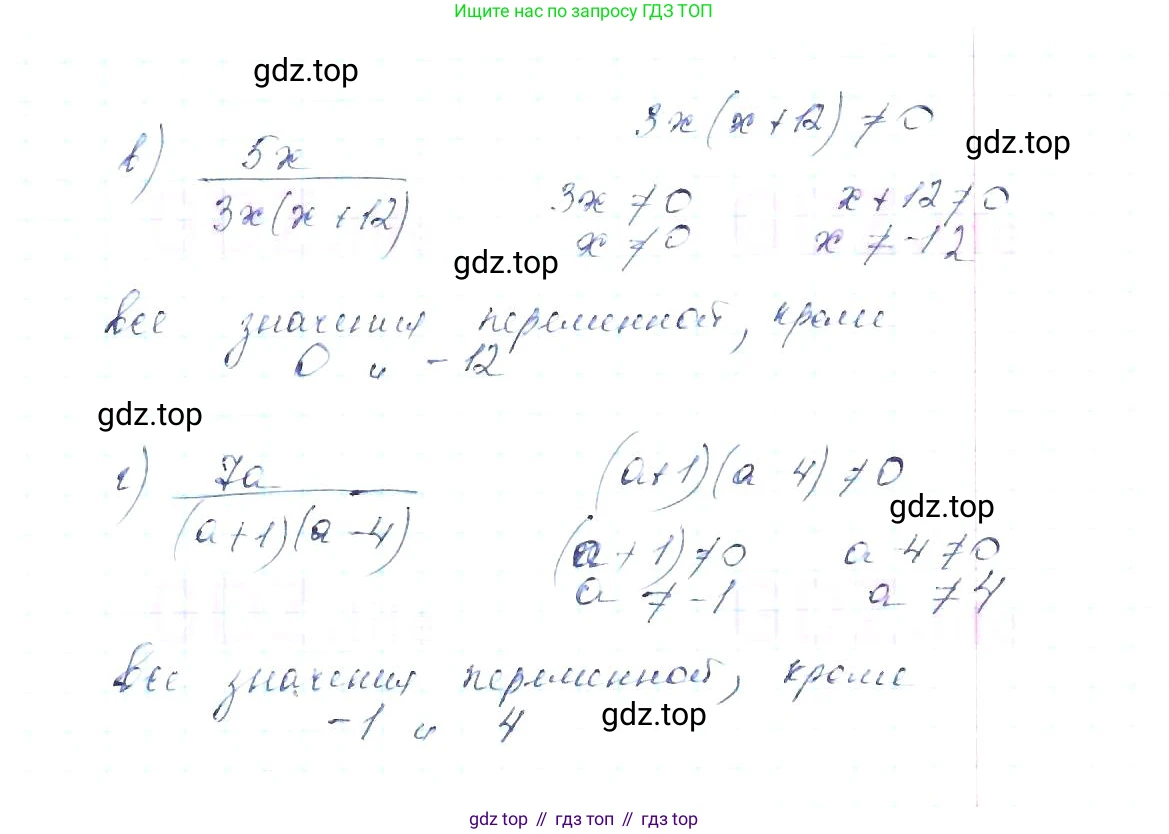 Ищите нас по запросу ГДЗ ТОП
gdz.top
3x(x+12) ≠ 0
в) 5x / 3x(x+12)
gdz.top
3x ≠ 0 x+12 ≠ 0
x ≠ 0 x ≠ -12
gdz.top
все значения переменной, кроме
0 и -12
gdz.top
г) 7a / (a+1)(a-4)
(a+1)(a 4) ≠ 0
gdz.top
(a+1) ≠ 0 a 4 ≠ 0
a ≠ -1 a ≠ 4
все значения переменной, кроме
-1 и 4
gdz.top
gdz top // гдз топ // гдз.top